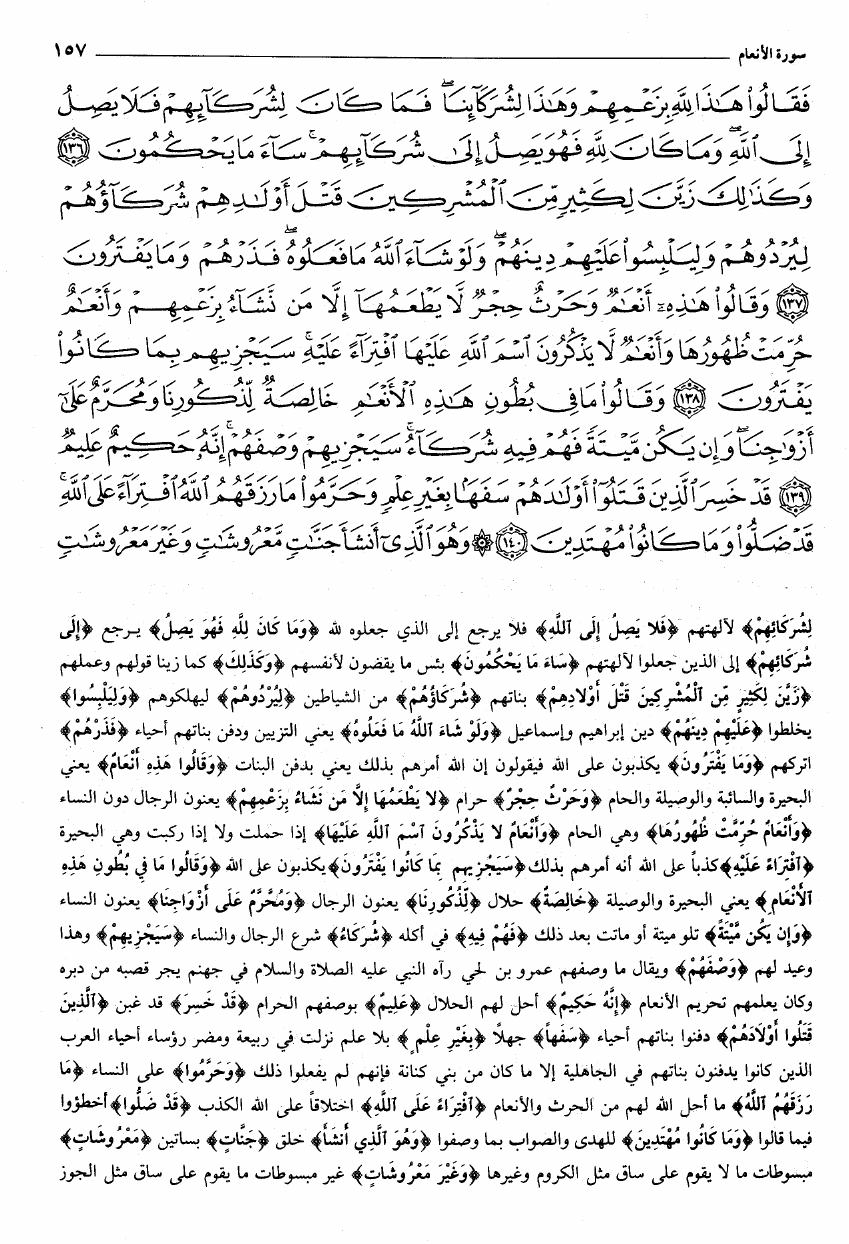 سورة الأنعام ١٥٧
فَقَالُواْ هَٰذَا لِلَّهِ بِزَعْمِهِمْ وَهَٰذَا لِشُرَكَآئِنَا ۖ فَمَا كَانَ لِشُرَكَآئِهِمْ فَلَا يَصِلُ
إِلَى ٱللَّهِ ۖ وَمَا كَانَ لِلَّهِ فَهُوَ يَصِلُ إِلَىٰ شُرَكَآئِهِمْ ۗ سَآءَ مَا يَحْكُمُونَ ﴿١٣٦﴾
وَكَذَٰلِكَ زَيَّنَ لِكَثِيرٍ مِّنَ ٱلْمُشْرِكِينَ قَتْلَ أَوْلَٰدِهِمْ شُرَكَآؤُهُمْ
لِيُرْدُوهُمْ وَلِيَلْبِسُواْ عَلَيْهِمْ دِينَهُمْ ۖ وَلَوْ شَآءَ ٱللَّهُ مَا فَعَلُوهُ ۖ فَذَرْهُمْ وَمَا يَفْتَرُونَ
﴿١٣٧﴾ وَقَالُواْ هَٰذِهِۦٓ أَنْعَٰمٌ وَحَرْثٌ حِجْرٌ لَّا يَطْعَمُهَآ إِلَّا مَن نَّشَآءُ بِزَعْمِهِمْ وَأَنْعَٰمٌ
حُرِّمَتْ ظُهُورُهَا وَأَنْعَٰمٌ لَّا يَذْكُرُونَ ٱسْمَ ٱللَّهِ عَلَيْهَا ٱفْتِرَآءً عَلَيْهِ ۚ سَيَجْزِيهِم بِمَا كَانُواْ
يَفْتَرُونَ ﴿١٣٨﴾ وَقَالُواْ مَا فِى بُطُونِ هَٰذِهِ ٱلْأَنْعَٰمِ خَالِصَةٌ لِّذُكُورِنَا وَمُحَرَّمٌ عَلَىٰٓ
أَزْوَٰجِنَا ۖ وَإِن يَكُن مَّيْتَةً فَهُمْ فِيهِ شُرَكَآءُ ۚ سَيَجْزِيهِمْ وَصْفَهُمْ ۚ إِنَّهُۥ حَكِيمٌ عَلِيمٌ
﴿١٣٩﴾ قَدْ خَسِرَ ٱلَّذِينَ قَتَلُوٓاْ أَوْلَٰدَهُمْ سَفَهًۢا بِغَيْرِ عِلْمٍ وَحَرَّمُواْ مَا رَزَقَهُمُ ٱللَّهُ ٱفْتِرَآءً عَلَى ٱللَّهِ ۚ
قَدْ ضَلُّواْ وَمَا كَانُواْ مُهْتَدِينَ ﴿١٤٠﴾ ۞ وَهُوَ ٱلَّذِىٓ أَنشَأَ جَنَّٰتٍ مَّعْرُوشَٰتٍ وَغَيْرَ مَعْرُوشَٰتٍ
لِشُرَكَائِهِمْ﴾ لآلهتهم ﴿فَلا يَصِلُ إِلَى ٱللَّهِ﴾ فلا يرجع إلى الذي جعلوه لله ﴿وَمَا كَانَ لِلَّهِ فَهُوَ يَصِلُ﴾ يرجع ﴿إِلَى
شُرَكَائِهِمْ﴾ إلى الذين جعلوا لآلهتهم ﴿سَاءَ مَا يَحْكُمُونَ﴾ بئس ما يقضون لأنفسهم ﴿وَكَذَلِكَ﴾ كما زينا قولهم وعملهم
﴿زَيَّنَ لِكَثِيرٍ مِّنَ ٱلْمُشْرِكِينَ قَتْلَ أَوْلَادِهِمْ﴾ بناتهم ﴿شُرَكَاؤُهُمْ﴾ من الشياطين ﴿لِيُرْدُوهُمْ﴾ ليهلكوهم ﴿وَلِيَلْبِسُوا﴾
يخلطوا ﴿عَلَيْهِمْ دِينَهُمْ﴾ دين إبراهيم وإسماعيل ﴿وَلَوْ شَاءَ ٱللَّهُ مَا فَعَلُوهُ﴾ يعني التزيين ودفن بناتهم أحياء ﴿فَذَرْهُمْ﴾
اتركهم ﴿وَمَا يَفْتَرُونَ﴾ يكذبون على الله فيقولون إن الله أمرهم بذلك يعني بدفن البنات ﴿وَقَالُوا هَذِهِ أَنْعَامٌ﴾ يعني
البحيرة والسائبة والوصيلة والحام ﴿وَحَرْثٌ حِجْرٌ﴾ حرام ﴿لا يَطْعَمُهَا إِلَّا مَن نَشَاءُ بِزَعْمِهِمْ﴾ يعنون الرجال دون النساء
﴿وَأَنْعَامٌ حُرِّمَتْ ظُهُورُهَا﴾ وهي الحام ﴿وَأَنْعَامٌ لَا يَذْكُرُونَ ٱسْمَ ٱللَّهِ عَلَيْهَا﴾ إذا حملت ولا إذا ركبت وهي البحيرة
﴿ٱفْتِرَاءً عَلَيْهِ﴾ كذباً على الله أنه أمرهم بذلك ﴿سَيَجْزِيهِم بِمَا كَانُوا يَفْتَرُونَ﴾ يكذبون على الله ﴿وَقَالُوا مَا فِي بُطُونِ هَذِهِ
ٱلْأَنْعَامِ﴾ يعني البحيرة والوصيلة ﴿خَالِصَةٌ﴾ حلال ﴿لِّذُكُورِنَا﴾ يعنون الرجال ﴿وَمُحَرَّمٌ عَلَى أَزْوَاجِنَا﴾ يعنون النساء
﴿وَإِن يَكُن مَّيْتَةً﴾ تلو ميتة أو ماتت بعد ذلك ﴿فَهُمْ فِيهِ﴾ في أكله ﴿شُرَكَاءُ﴾ شرع الرجال والنساء ﴿سَيَجْزِيهِمْ﴾ وهذا
وعيد لهم ﴿وَصْفَهُمْ﴾ ويقال ما وصفهم عمرو بن لحي رآه النبي عليه الصلاة والسلام في جهنم يجر قصبه من دبره
وكان يعلمهم تحريم الأنعام ﴿إِنَّهُ حَكِيمٌ﴾ أحل لهم الحلال ﴿عَلِيمٌ﴾ بوصفهم الحرام ﴿قَدْ خَسِرَ﴾ قد غبن ﴿ٱلَّذِينَ
قَتَلُوا أَوْلَادَهُمْ﴾ دفنوا بناتهم أحياء ﴿سَفَهاً﴾ جهلاً ﴿بِغَيْرِ عِلْمٍ﴾ بلا علم نزلت في ربيعة ومضر رؤساء أحياء العرب
الذين كانوا يدفنون بناتهم في الجاهلية إلا ما كان من بني كنانة فإنهم لم يفعلوا ذلك ﴿وَحَرَّمُوا﴾ على النساء ﴿مَا
رَزَقَهُمُ ٱللَّهُ﴾ ما أحل الله لهم من الحرث والأنعام ﴿ٱفْتِرَاءً عَلَى ٱللَّهِ﴾ اختلاقاً على الله الكذب ﴿قَدْ ضَلُّوا﴾ أخطؤوا
فيما قالوا ﴿وَمَا كَانُوا مُهْتَدِينَ﴾ للهدى والصواب بما وصفوا ﴿وَهُوَ ٱلَّذِي أَنشَأَ﴾ خلق ﴿جَنَّاتٍ﴾ بساتين ﴿مَعْرُوشَاتٍ﴾
مبسوطات ما لا يقوم على ساق مثل الكروم وغيرها ﴿وَغَيْرَ مَعْرُوشَاتٍ﴾ غير مبسوطات ما يقوم على ساق مثل الجوز